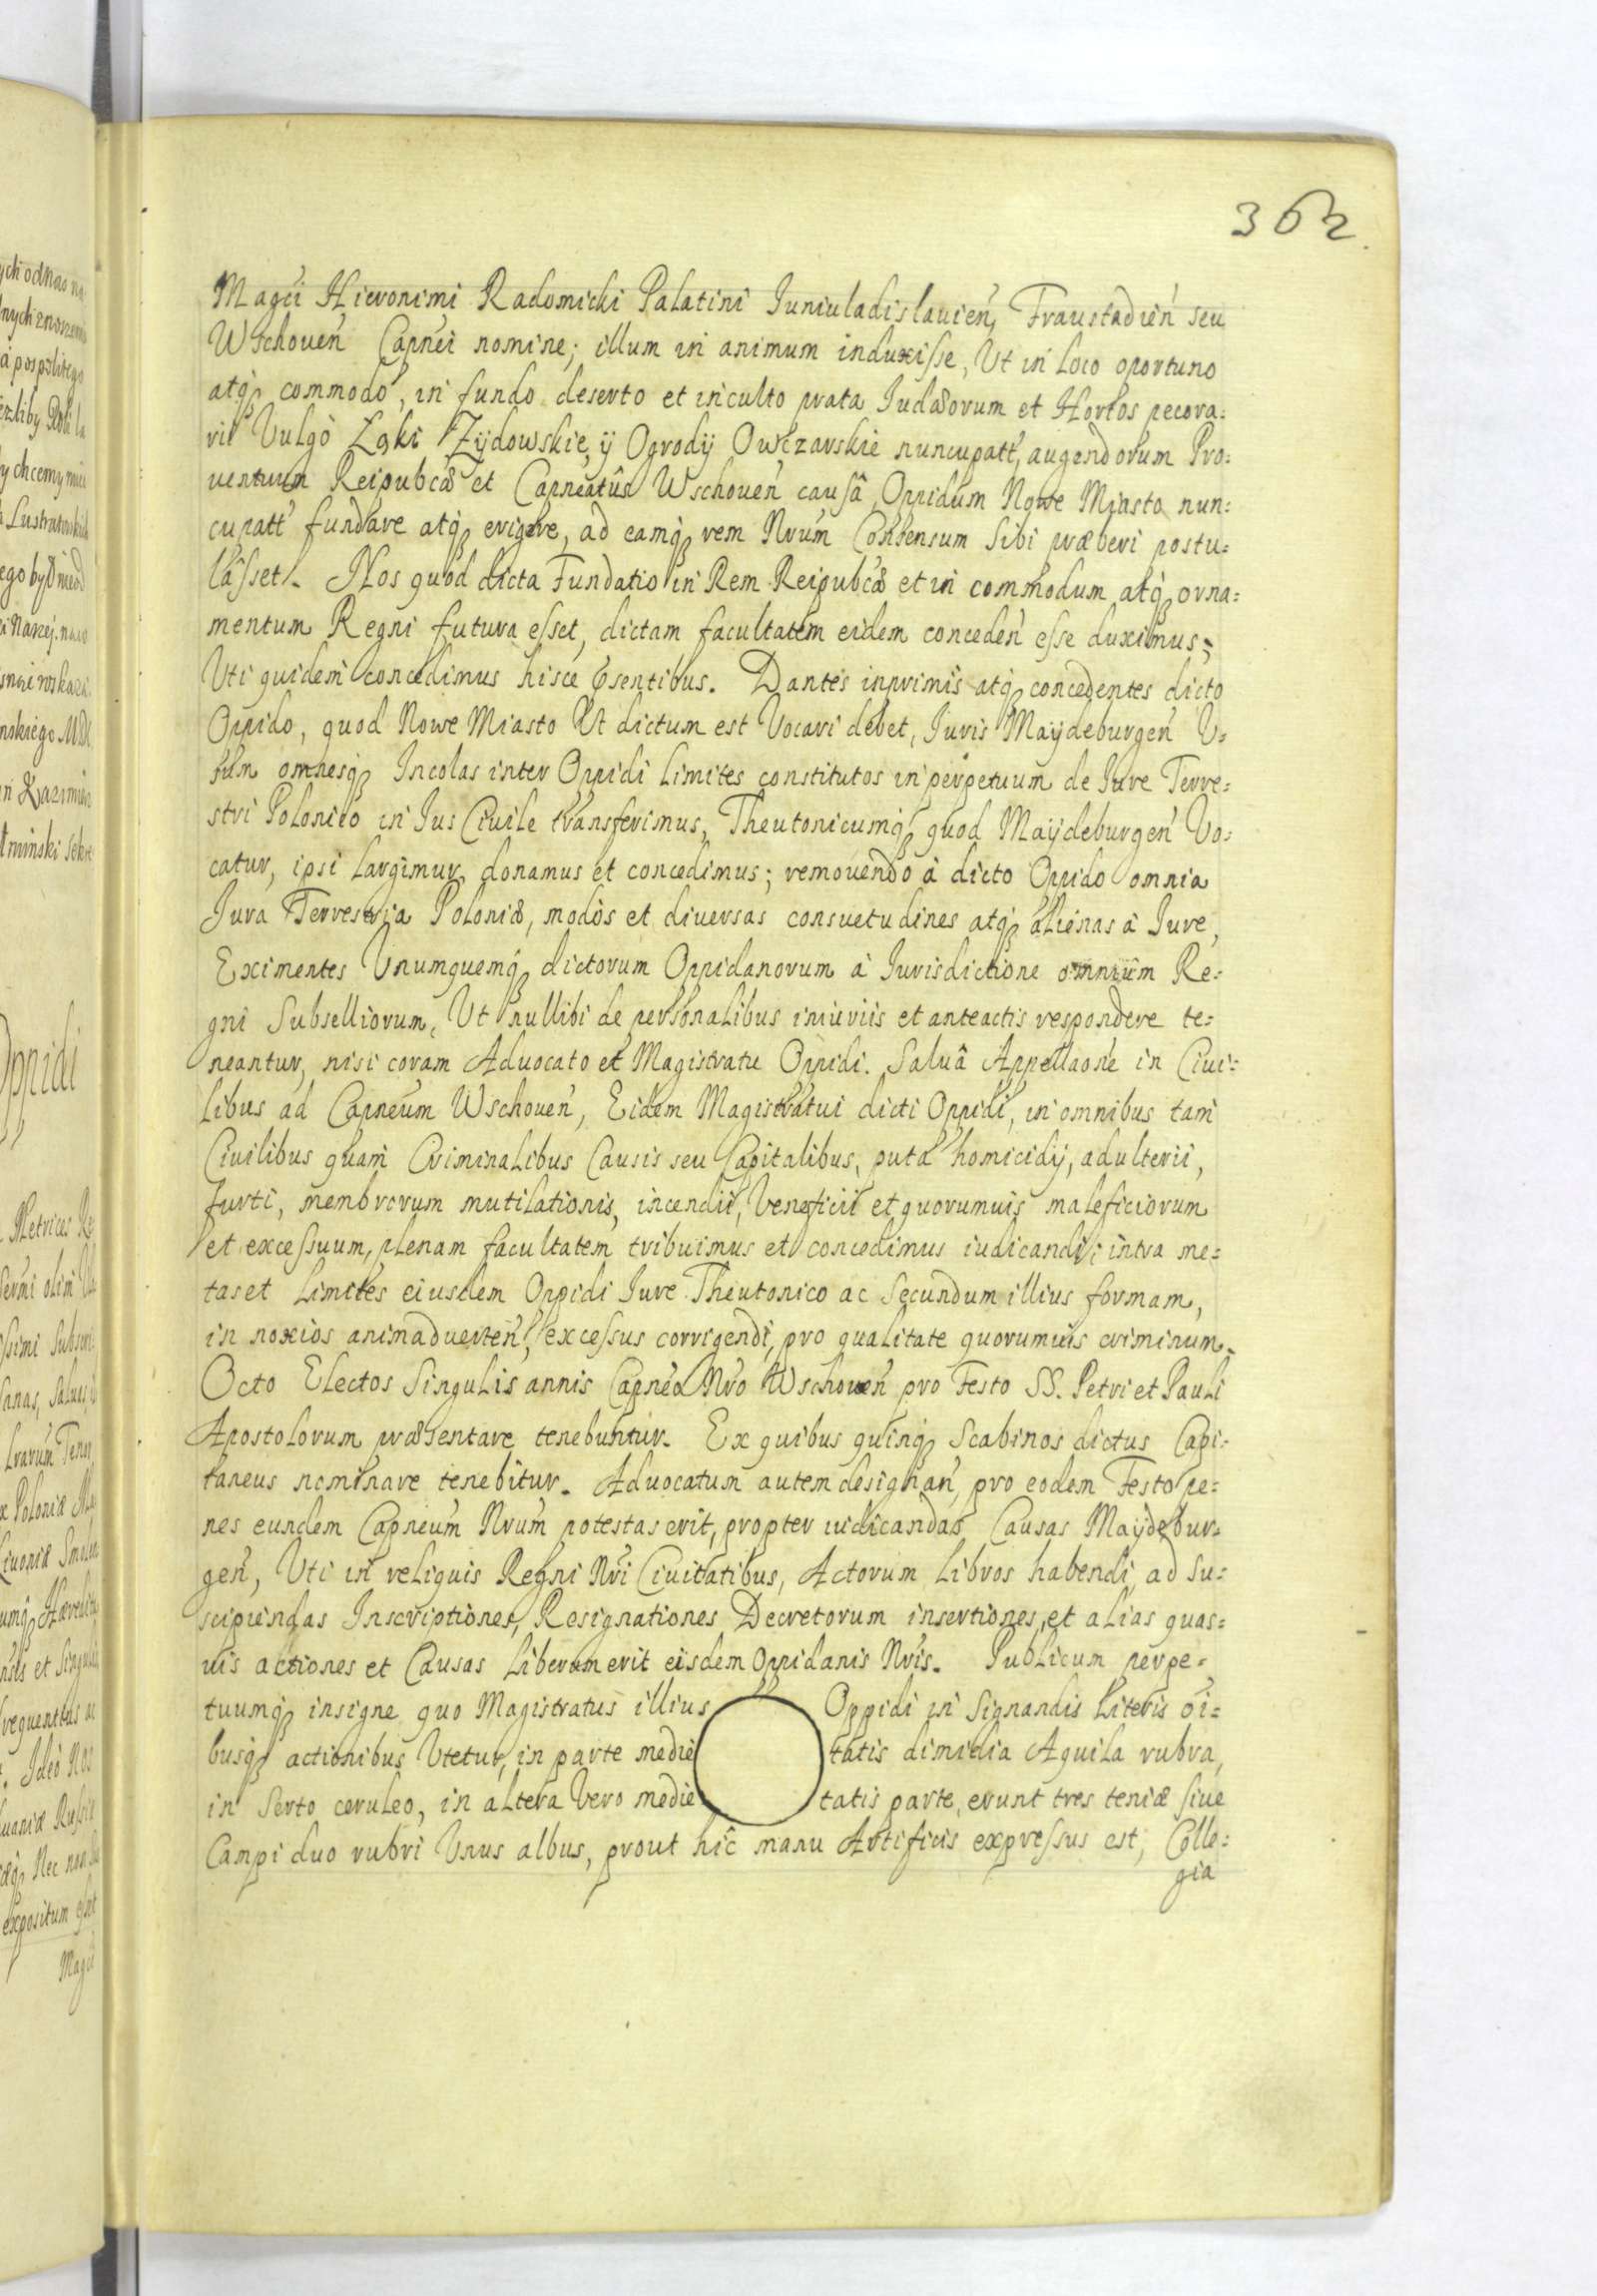 362
Magci Hieronimi Radomicki Palatini Iuniuladislauien, Fraustadien seu
Wschouen Capnei nomine; illum in animum induxisse, Ut in loco oportuno
atq commodo, in fundo deserto et inculto prata Iudæorum et Hortos pecora=
rii Vulgò Łąki Zÿdowskie, ÿ Ogrodÿ Owczarskie nuncupatt, augendorum Pro=
uentuum Reipubcæ et Capneatûs Wschouen causâ, Oppidum Nowe Miasto nun=
cupatt fundare atq erigere, ad eamq rem Nrum Consensum Sibi præberi postu=
lasset. Nos quod dicta Fundatio in Rem Reipubcæ et in commodum atq orna=
mentum Regni futura esset, dictam facultatem eidem conceden esse duximus;
Uti quidem concedimus hisce psentibus. Dantes inprimis atq concedentes dicto
Oppido, quod Nowe Miasto Ut dictum est Vocari debet, Iuris Maÿdeburgen U=
sum omnesq Incolas inter Oppidi limites constitutos in perpetuum de Iure Terre=
stri Polonico in Ius Ciuile transferimus, Theutonicumq quod Maÿdeburgen Vo=
catur, ipsi largimur, donamus et concedimus; remouendo à dicto Oppido omnia
Iura Terrestria Poloniæ, modos et diuersas consuetudines atq alienas à Iure,
Eximentes Vnumquemq dictorum Oppidanorum à Iurisdictione omnium Re=
gni Subselliorum, Ut nullibi de personalibus iniuriis et anteactis respondere te=
neantur, nisi coram Aduocato et Magistratu Oppidi. Saluâ Appellaone in Ciui=
libus ad Capneum Wschouen, Eidem Magistratui dicti Oppidi, in omnibus tam
Ciuilibus quam Criminalibus Causis seu Capitalibus, puta homicidÿ, adulterii,
furti, membrorum mutilationis, incendii, Veneficii et quorumuis maleficiorum
et excessuum, plenam facultatem tribuimus et concedimus iudicandi, intra me=
tas et limites eiusdem Oppidi Iure Theutonico ac Secundum illius formam,
in noxios animaduerten, excessus corrigendi, pro qualitate quorumuis criminum.
Octo Electos Singulis annis Capneo Nro Wschouen pro Festo SS. Petri et Pauli
Apostolorum præsentare tenebuntur. Ex quibus quinq Scabinos dictus Capi=
taneus nominare tenebitur. Aduocatum autem designan, pro eodem Festo pe=
nes eundem Capneum Nrum potestas erit, propter iudicandas Causas Maÿdebur=
gen, Uti in reliquis Regni Nri Ciuitatibus, Actorum Libros habendi, ad su=
scipiendas Inscriptiones, Resignationes Decretorum insertiones, et alias quas=
uis actiones et Causas Liberum erit eisdem Oppidanis Nris. Publicum perpe=
tuumq insigne quo Magistratus illius Oppidi in Signandis Literis oi=
busq actionibus Utetur, in parte medie tatis dimidia Aquila rubra,
in Serto ceruleo, in altera Vero medie tatis parte, erunt tres teniæ siue
Campi duo rubri Unus albus, prout hîc manu Artificis expressus est, Colle=
gia